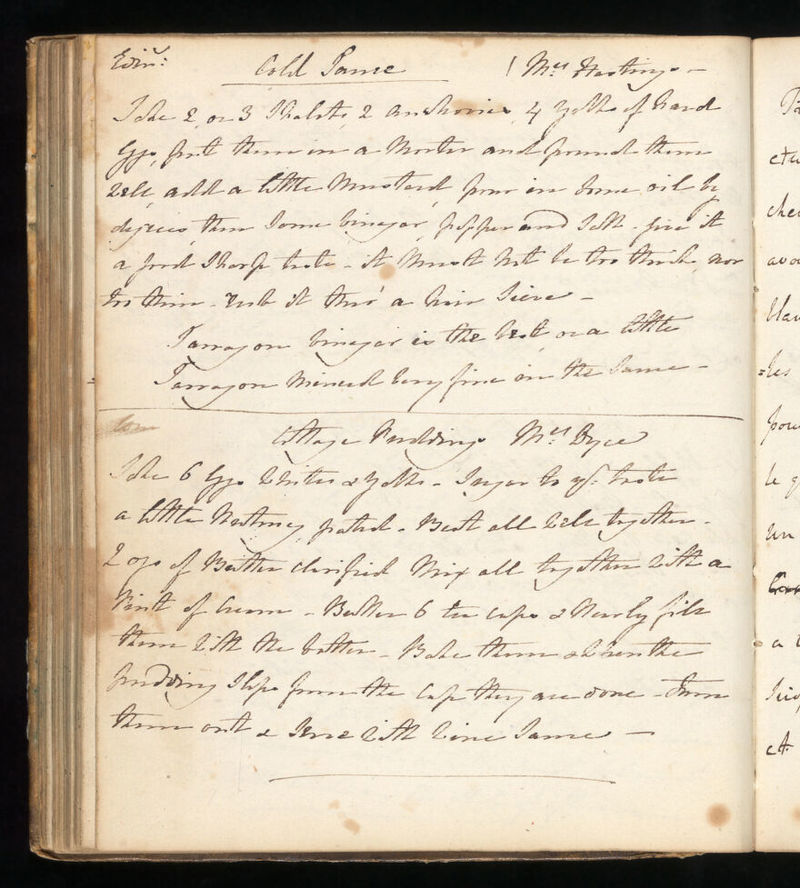 Edinr: Cold Sauce Mrs Hastings -
Take 2, or 3 Shalots, 2 Anchovies, 4 Yolks of hard
Eggs, put them in a Morter and pound them
well, add a little Mustard, pour in some oil by
degrees, then some vinegar, pepper and Salt - give it
a good Sharp taste - it Must not be too thick, nor
too thin - rub it thro' a hair Sieve -
Tarragon vinegar is the best, or a little
Tarragon Minced very fine in the Sauce -
Cottage Puddings Mrs Dyce
Take 6 Eggs whites & Yolks - Sugar to yr. taste
a little Nutmeg grated - Beat all well together -
2 ozs of Butter clarified Mix all together with a
Pint of Cream - Butter 6 tea cups & Nearly fill
them with the batter - Bake them & when the
pudding Slips from the Cup they are done - turn
them out & serve with wine Sauce -
ctu
chez
avo
les
pou
le
un
a
et